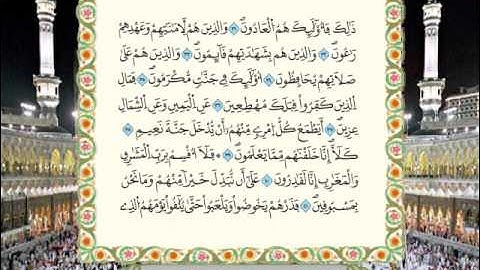 ذَٰلِكَ فَأُوْلَٰٓئِكَ هُمُ الْعَادُونَ ۝ وَالذِينَ هُمْ لِأَمَٰنَٰتِهِمْ وَعَهْدِهِمْ
رَٰعُونَ ۝ وَالذِينَ هُم بِشَهَٰدَتِهِمْ قَآئِمُونَ ۝ وَالذِينَ هُمْ عَلَىٰ
صَلَاتِهِمْ يُحَافِظُونَ ۝ أُوْلَٰٓئِكَ فِي جَنَّٰتٍ مُّكْرَمُونَ ۝ فَمَالِ
الذِينَ كَفَرُواْ قِبَلَكَ مُهْطِعِينَ ۝ عَنِ الْيَمِينِ وَعَنِ الشِّمَالِ
عِزِينَ ۝ أَيَطْمَعُ كُلُّ امْرِئٍ مِّنْهُمُۥٓ أَنْ يُّدْخَلَ جَنَّةَ نَعِيمٍ ۝
كَلَّآ إِنَّا خَلَقْنَٰهُم مِّمَّا يَعْلَمُونَ ۝ فَلَآ أُقْسِمُ بِرَبِّ الْمَشَٰرِقِ
وَالْمَغَٰرِبِ إِنَّا لَقَٰدِرُونَ ۝ عَلَىٰٓ أَن نُّبَدِّلَ خَيْراً مِّنْهُمْ وَمَا نَحْنُ
بِمَسْبُوقِينَ ۝ فَذَرْهُمْ يَخُوضُواْ وَيَلْعَبُواْ حَتَّىٰ يُلَٰقُواْ يَوْمَهُمُ الذِے